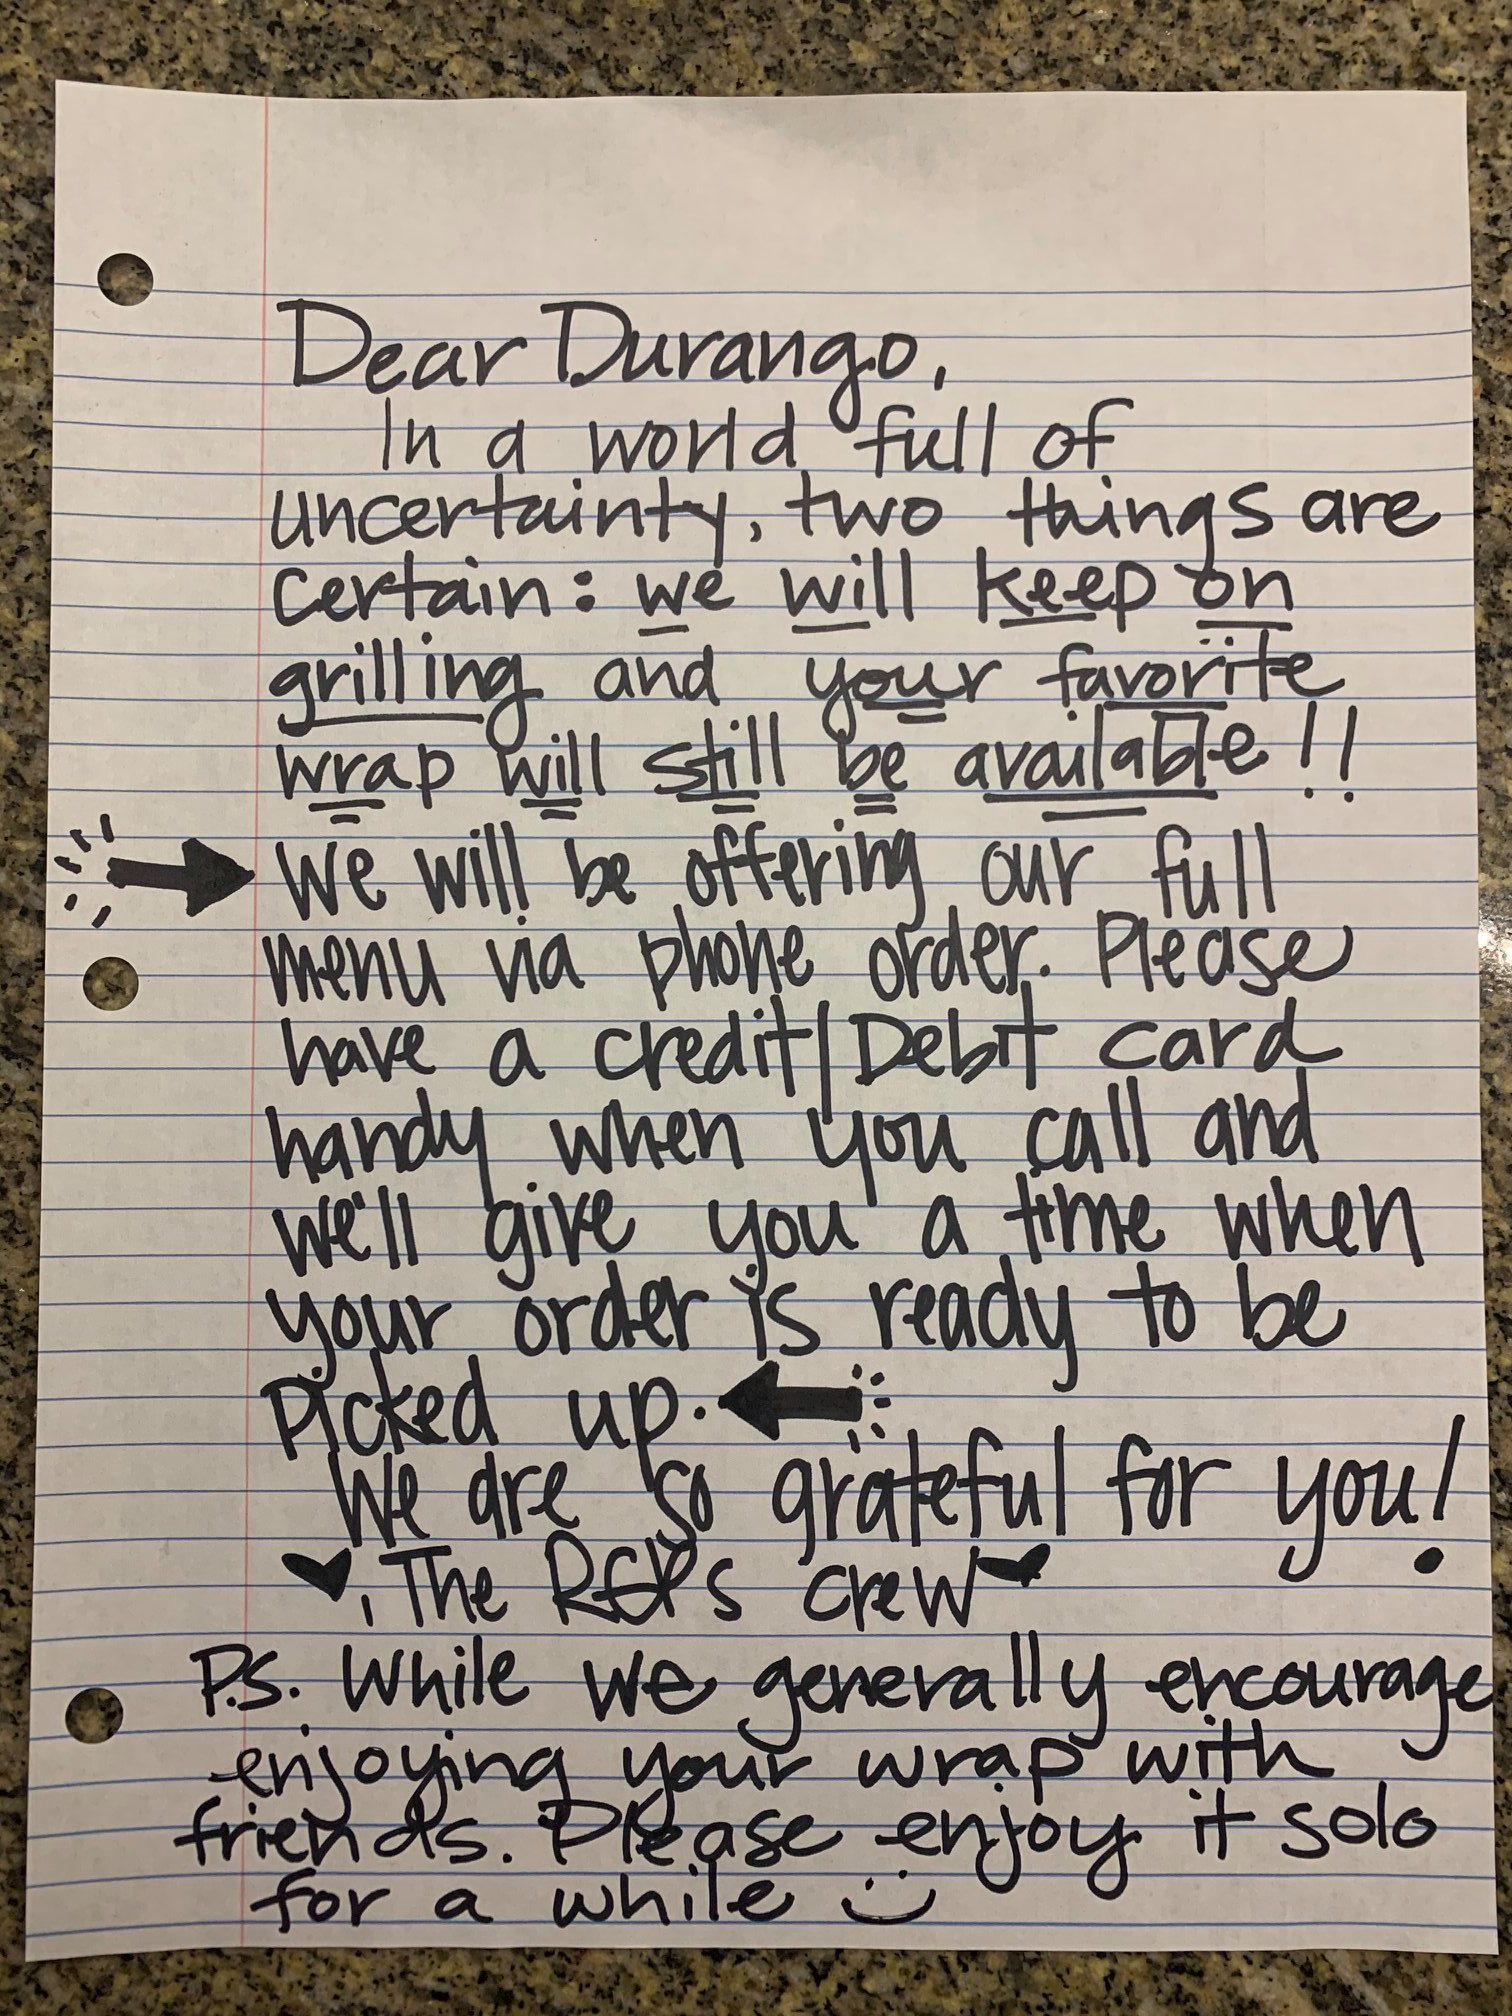 Dear Durango,
In a world full of
uncertainty, two things are
certain: we will keep on
grilling and your favorite
wrap will still be available!!
We will be offering our full
menu via phone order. Please
have a credit/Debit card
handy when you call and
we'll give you a time when
your order is ready to be
Picked up.
We are so grateful for you!
, The RGP's crew
P.S. While we generally encourage
enjoying your wrap with
friends. Please enjoy it solo
for a while